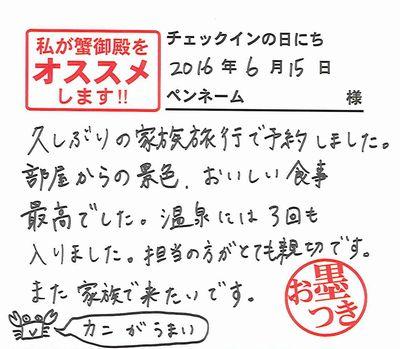 私が蟹御殿を
オススメ
します!!
チェックインの日にち
2016年6月15日
ペンネーム 様
久しぶりの家族旅行で予約しました。
部屋からの景色、おいしい食事
最高でした。温泉には3回も
入りました。担当の方がとても親切です。
また家族で来たいです。
お墨つき
カニがうまい